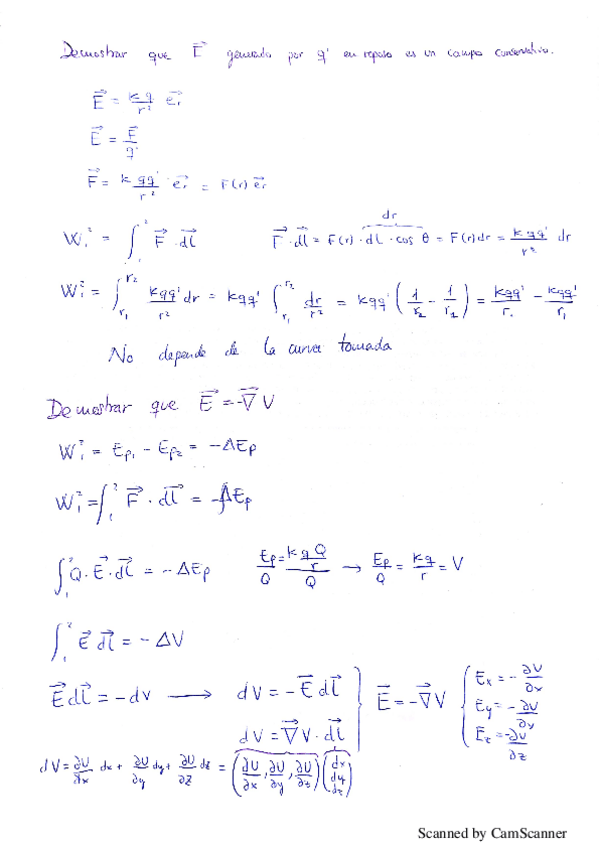 Demostrar que E⃗ generado por q' en reposo es un campo conservativo.
E⃗ = kq/r² e⃗r
E⃗ = F⃗/q'
F⃗ = k qq'/r² · e⃗r = F(r) e⃗r
dr
W₁² = ∫₁² F⃗ · dl⃗    F⃗ · dl⃗ = F(r) · dl · cos θ = F(r) dr = kqq'/r² dr
W₁² = ∫_{r₁}^{r₂} kqq'/r² dr = kqq' ∫_{r₁}^{r₂} dr/r² = kqq' (1/r₂ - 1/r₁) = kqq'/r. - kqq'/r₁
No depende de la curva tomada
Demostrar que E⃗ = -∇⃗ V
W₁² = Ep₁ - Ep₂ = -ΔEp
W₁² = ∫₁² F⃗ · dl⃗ = -ΔEp
∫₁² Q · E⃗ · dl⃗ = -ΔEp    Ep/Q = (k q Q/r)/Q → Ep/Q = kq/r = V
∫₁² E⃗ dl⃗ = -ΔV
E⃗ dl⃗ = -dv → dV = -E⃗ dl⃗    E⃗ = -∇⃗V    Ex = -∂U/∂x
dV = ∇⃗V · dl⃗    Ey = -∂U/∂y
Ez = -∂U/∂z
dV = ∂U/∂x dx + ∂U/∂y dy + ∂U/∂z dz = (∂U/∂x, ∂U/∂y, ∂U/∂z) (dx dy dz)
Scanned by CamScanner